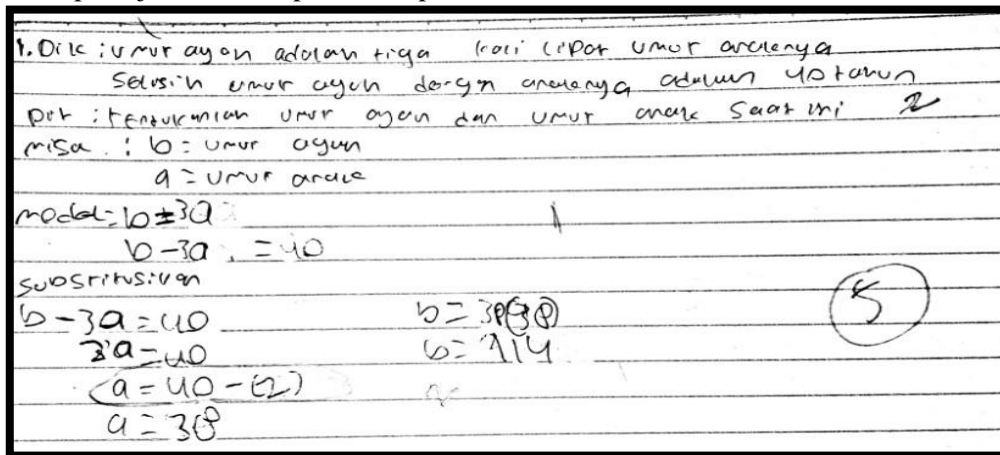 1. Dik : umur ayah adalah tiga kali lipat umur anaknya
Selisih umur ayah dengan anaknya adalah 40 tahun
Dit : tentukanlah umur ayah dan umur anak saat ini 2
misa : b = umur ayah
a = umur anak
model = b = 3a 1
b - 3a = 40
substitusikan
b - 3a = 40
2a = 40
a = 40 - (2)
a = 38
b = 38
b = 114
5